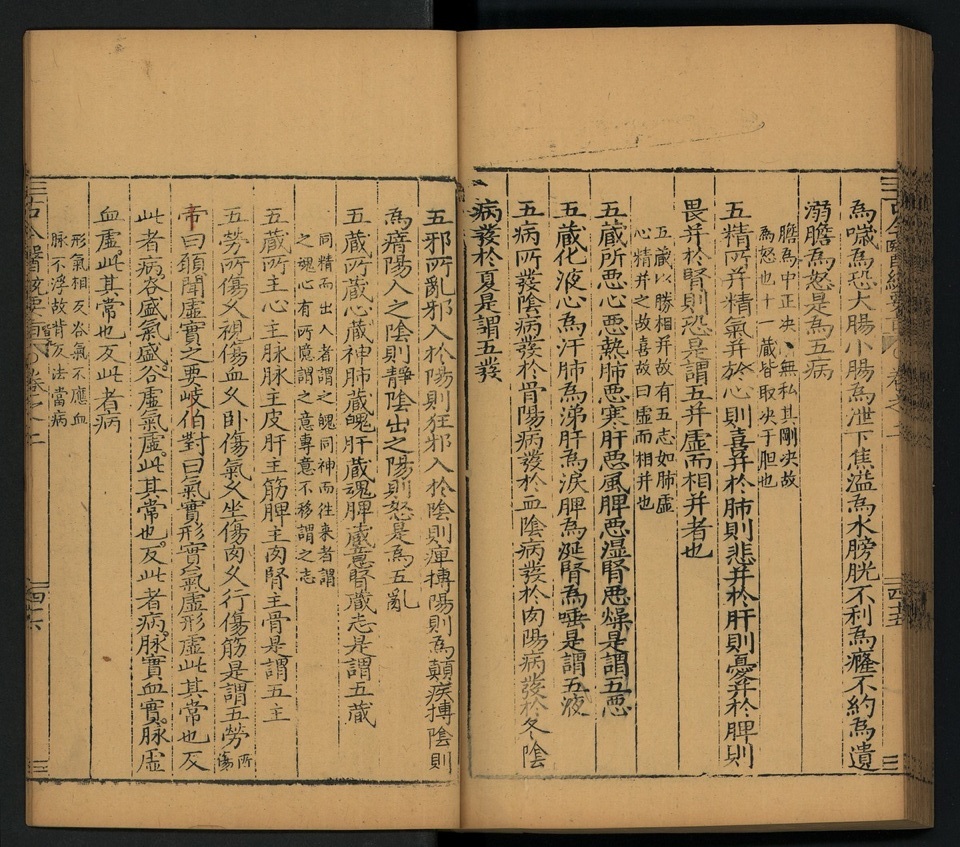 為噦為恐大腸小腸為泄下焦溢為水膀胱不利為癃不約為遺
溺膽為怒是為五病
膽為中正决、、無私其剛决故
為怒也十一蔵皆取决于胆也
五精所并精氣并於心則喜并於肺則悲并於肝則憂并於脾則
畏并於腎則恐是謂五并虚而相并者也
五蔵以勝相并故有五志如肺虚
心精并之故喜故曰虚而相并也
五蔵所悪心悪熱肺悪寒肝悪風脾悪湿腎悪燥是謂五悪
五蔵化液心為汗肺為涕肝為涙脾為涎腎為唾是謂五液
五病所發陰病發於骨陽病發於血陰病發於肉陽病發於冬陰
病發於夏是謂五發
五邪所亂邪入於陽則狂邪入於陰則痺摶陽則為顛疾摶陰則
為瘖陽入之陰則静陰出之陽則怒是為五亂
五蔵所蔵心蔵神肺蔵魄肝蔵魂脾蔵意腎蔵志是謂五蔵
同精而出入者謂之魄同神而徃來者謂
之魂心有所憶謂之意專意不移謂之志
五蔵所主心主脉肺主皮肝主筋脾主肉腎主骨是謂五主
五勞所傷久視傷血久卧傷氣久坐傷肉久行傷筋是謂五勞所傷
帝曰願聞虚實之要岐伯對曰氣實形實氣虚形虚此其常也反
此者病谷盛氣盛谷虚氣虚此其常也反此者病脉實血實脉虚
血虚此其常也反此者病
形氣相反谷氣不應血
脉不浮故背反法當病
卷之二
四六
四五